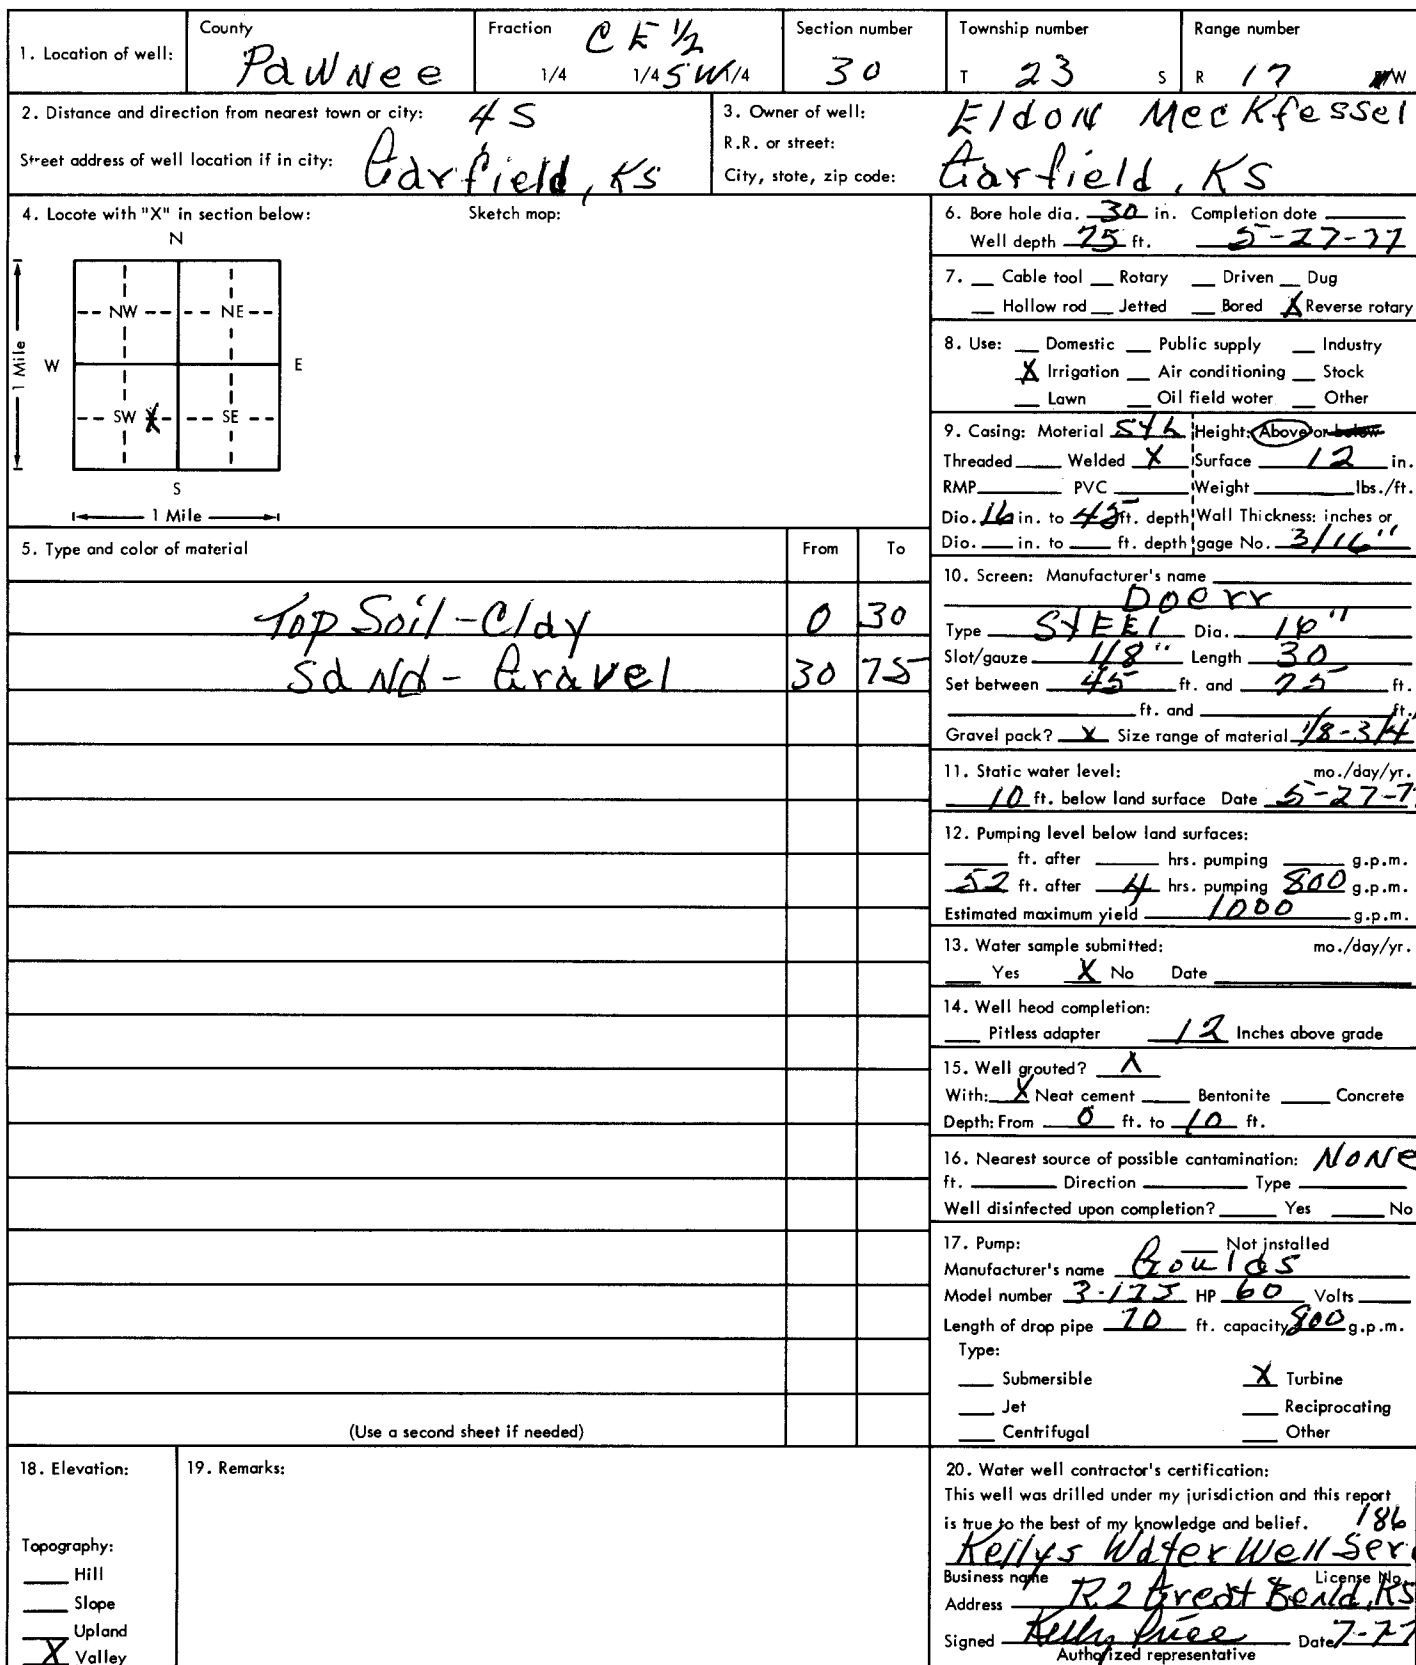 1. Location of well: County Pawnee Fraction C E 1/2 1/4 1/4 SW 1/4 Section number 30 Township number T 23 S Range number R 17 W
2. Distance and direction from nearest town or city: 4 S
Street address of well location if in city: Garfield, KS
3. Owner of well: Eldon Meckfessel
R.R. or street:
City, state, zip code: Garfield, KS
4. Locote with "X" in section below: Sketch mop:
N
NW NE
W E
1 Mile
SW X SE
S
1 Mile
5. Type and color of material From To
Top Soil - Clay 0 30
Sand - Gravel 30 75
(Use a second sheet if needed)
6. Bore hole dia. 30 in. Completion date
Well depth 75 ft. 5-27-77
7. Cable tool Rotary Driven Dug
Hollow rod Jetted Bored X Reverse rotary
8. Use: Domestic Public supply Industry
X Irrigation Air conditioning Stock
Lawn Oil field woter Other
9. Casing: Moterial Height: Above or below
Threaded Welded X Surface 12 in.
RMP PVC Weight lbs./ft.
Dio. 16 in. to 45 ft. depth Wall Thickness: inches or
Dio. in. to ft. depth gage No. 3/16"
10. Screen: Manufacturer's name
Doerr
Type Steel Dia. 16"
Slot/gauze 1/8" Length 30
Set between 45 ft. and 75 ft.
ft. and ft.
Gravel pack? X Size range of material 1/8-3/4
11. Static water level: mo./day/yr.
10 ft. below land surface Date 5-27-7
12. Pumping level below land surfaces:
ft. after hrs. pumping g.p.m.
52 ft. after 4 hrs. pumping 800 g.p.m.
Estimated maximum yield 1000 g.p.m.
13. Water sample submitted: mo./day/yr.
Yes X No Date
14. Well heod completion:
Pitless adapter 12 Inches above grade
15. Well grouted? X
With: X Neat cement Bentonite Concrete
Depth: From 0 ft. to 10 ft.
16. Nearest source of possible cantamination: None
ft. Direction Type
Well disinfected upon completion? Yes No
17. Pump: Not installed
Manufacturer's name Goulds
Model number HP 60 Volts
Length of drop pipe 70 ft. capacity 800 g.p.m.
Type:
Submersible X Turbine
Jet Reciprocating
Centrifugal Other
18. Elevation:
Topography:
Hill
Slope
Upland
X Valley
19. Remarks:
20. Water well contractor's certification:
This well was drilled under my jurisdiction and this report
is true to the best of my knowledge and belief. 186
Kellys Water Well Serv
Business name License No.
Address R2 Great Bend, KS
Signed Kelly Price Date 7-7-7
Authorized representative